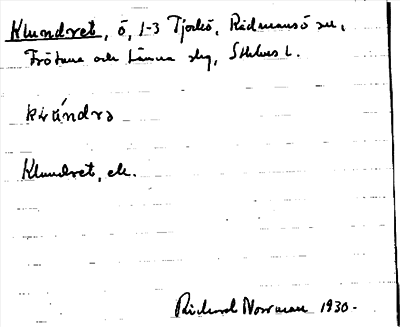 Klundret, ö, 1-3 Tjockö, Rådmansö sn,
Frötuna och Länna skg, Sthlms l.
Klundret, ek.
Richard Norrman 1930.